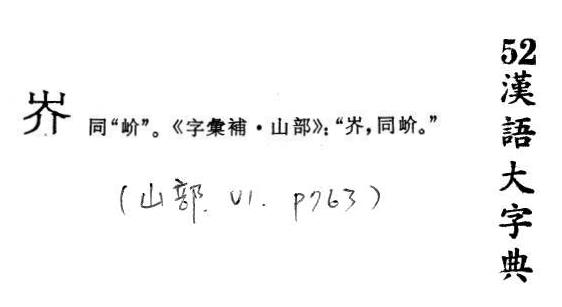 岕 同“⿰山介”。《字彙補·山部》:“岕,同⿰山介。”
(山部. V1. P763)
52漢語大字典